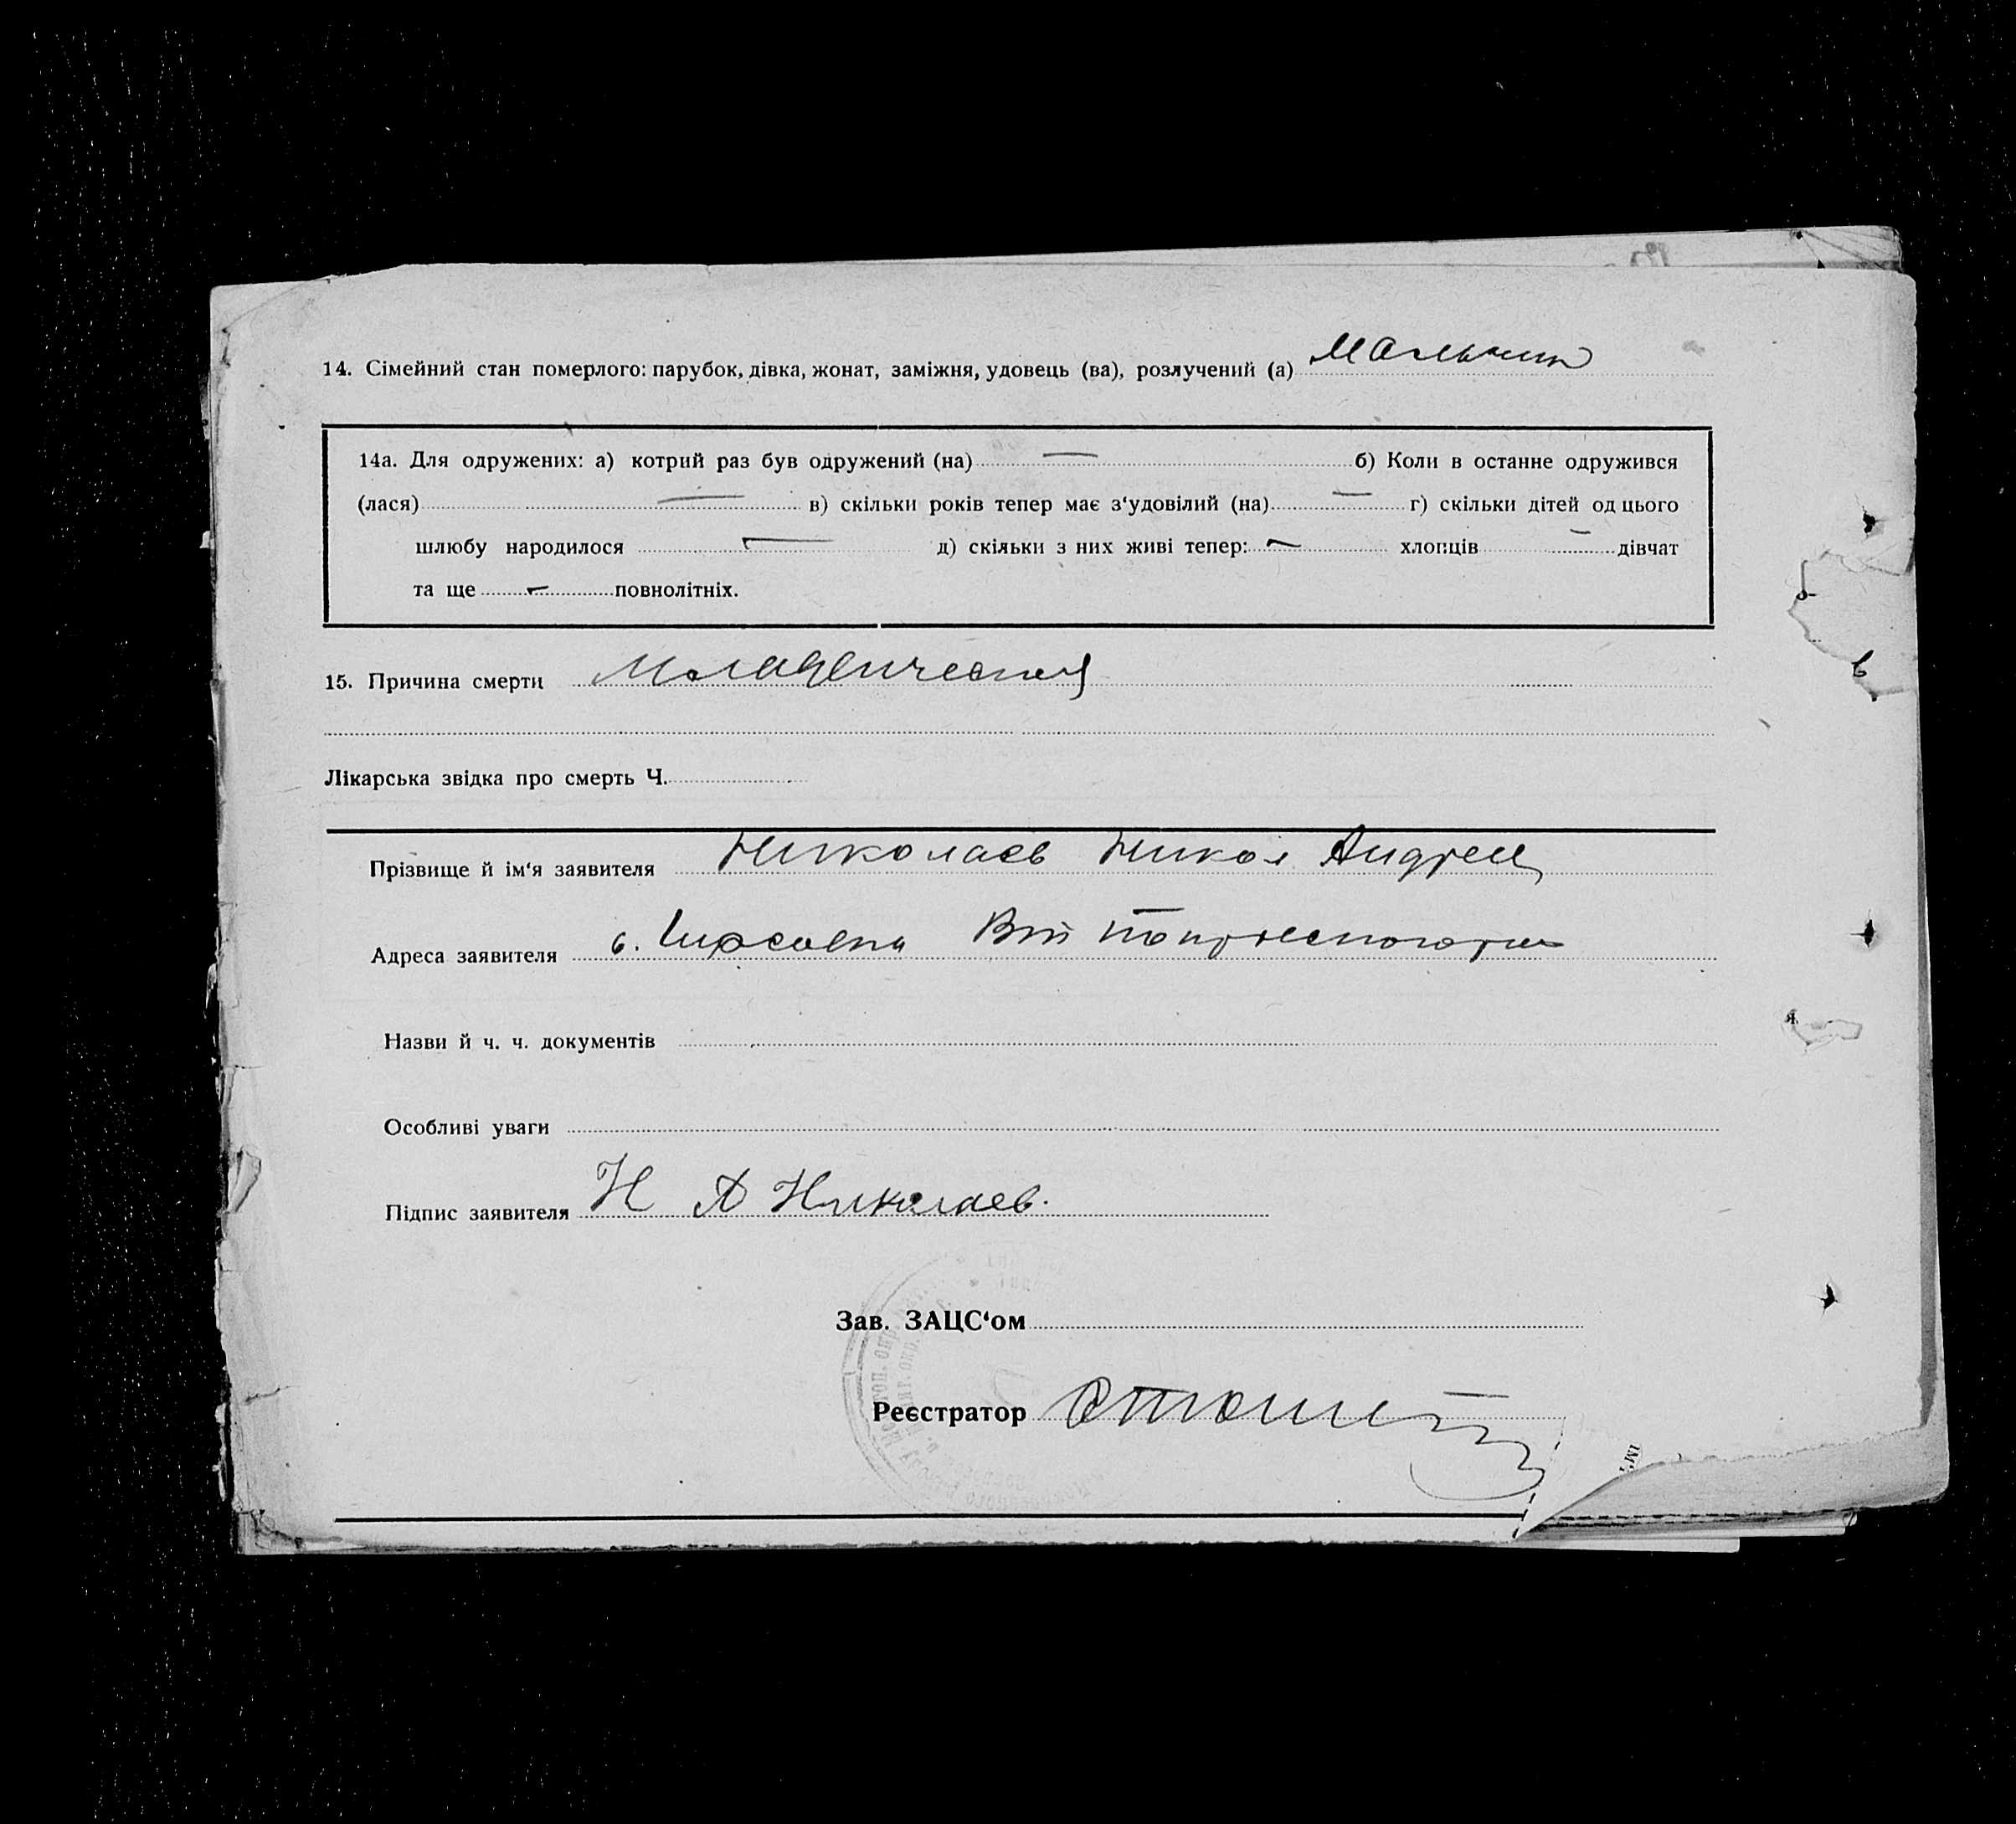 14. Сімейний стан померлого: парубок, дівка, жонат, заміжня, удовець (ва), розлучений (а) Мальчик
14а. Для одружених: а) котрий раз був одружений (на) — б) Коли в останне одружився
(лася) — в) скільки років тепер має з‘удовілий (на) — г) скільки дітей од цього
шлюбу народилося — д) скільки з них живі тепер: — хлопців — дівчат
та ще — повнолітніх.
15. Причина смерти Младенческая
Лікарська звідка про смерть Ч.
Прізвище й ім‘я заявителя Николаев Никол Андреев
Адреса заявителя с.
Назви й ч. ч. документів
Особливі уваги
Підпис заявителя Н А Николаев.
Зав. ЗАЦС‘ом
Реєстратор